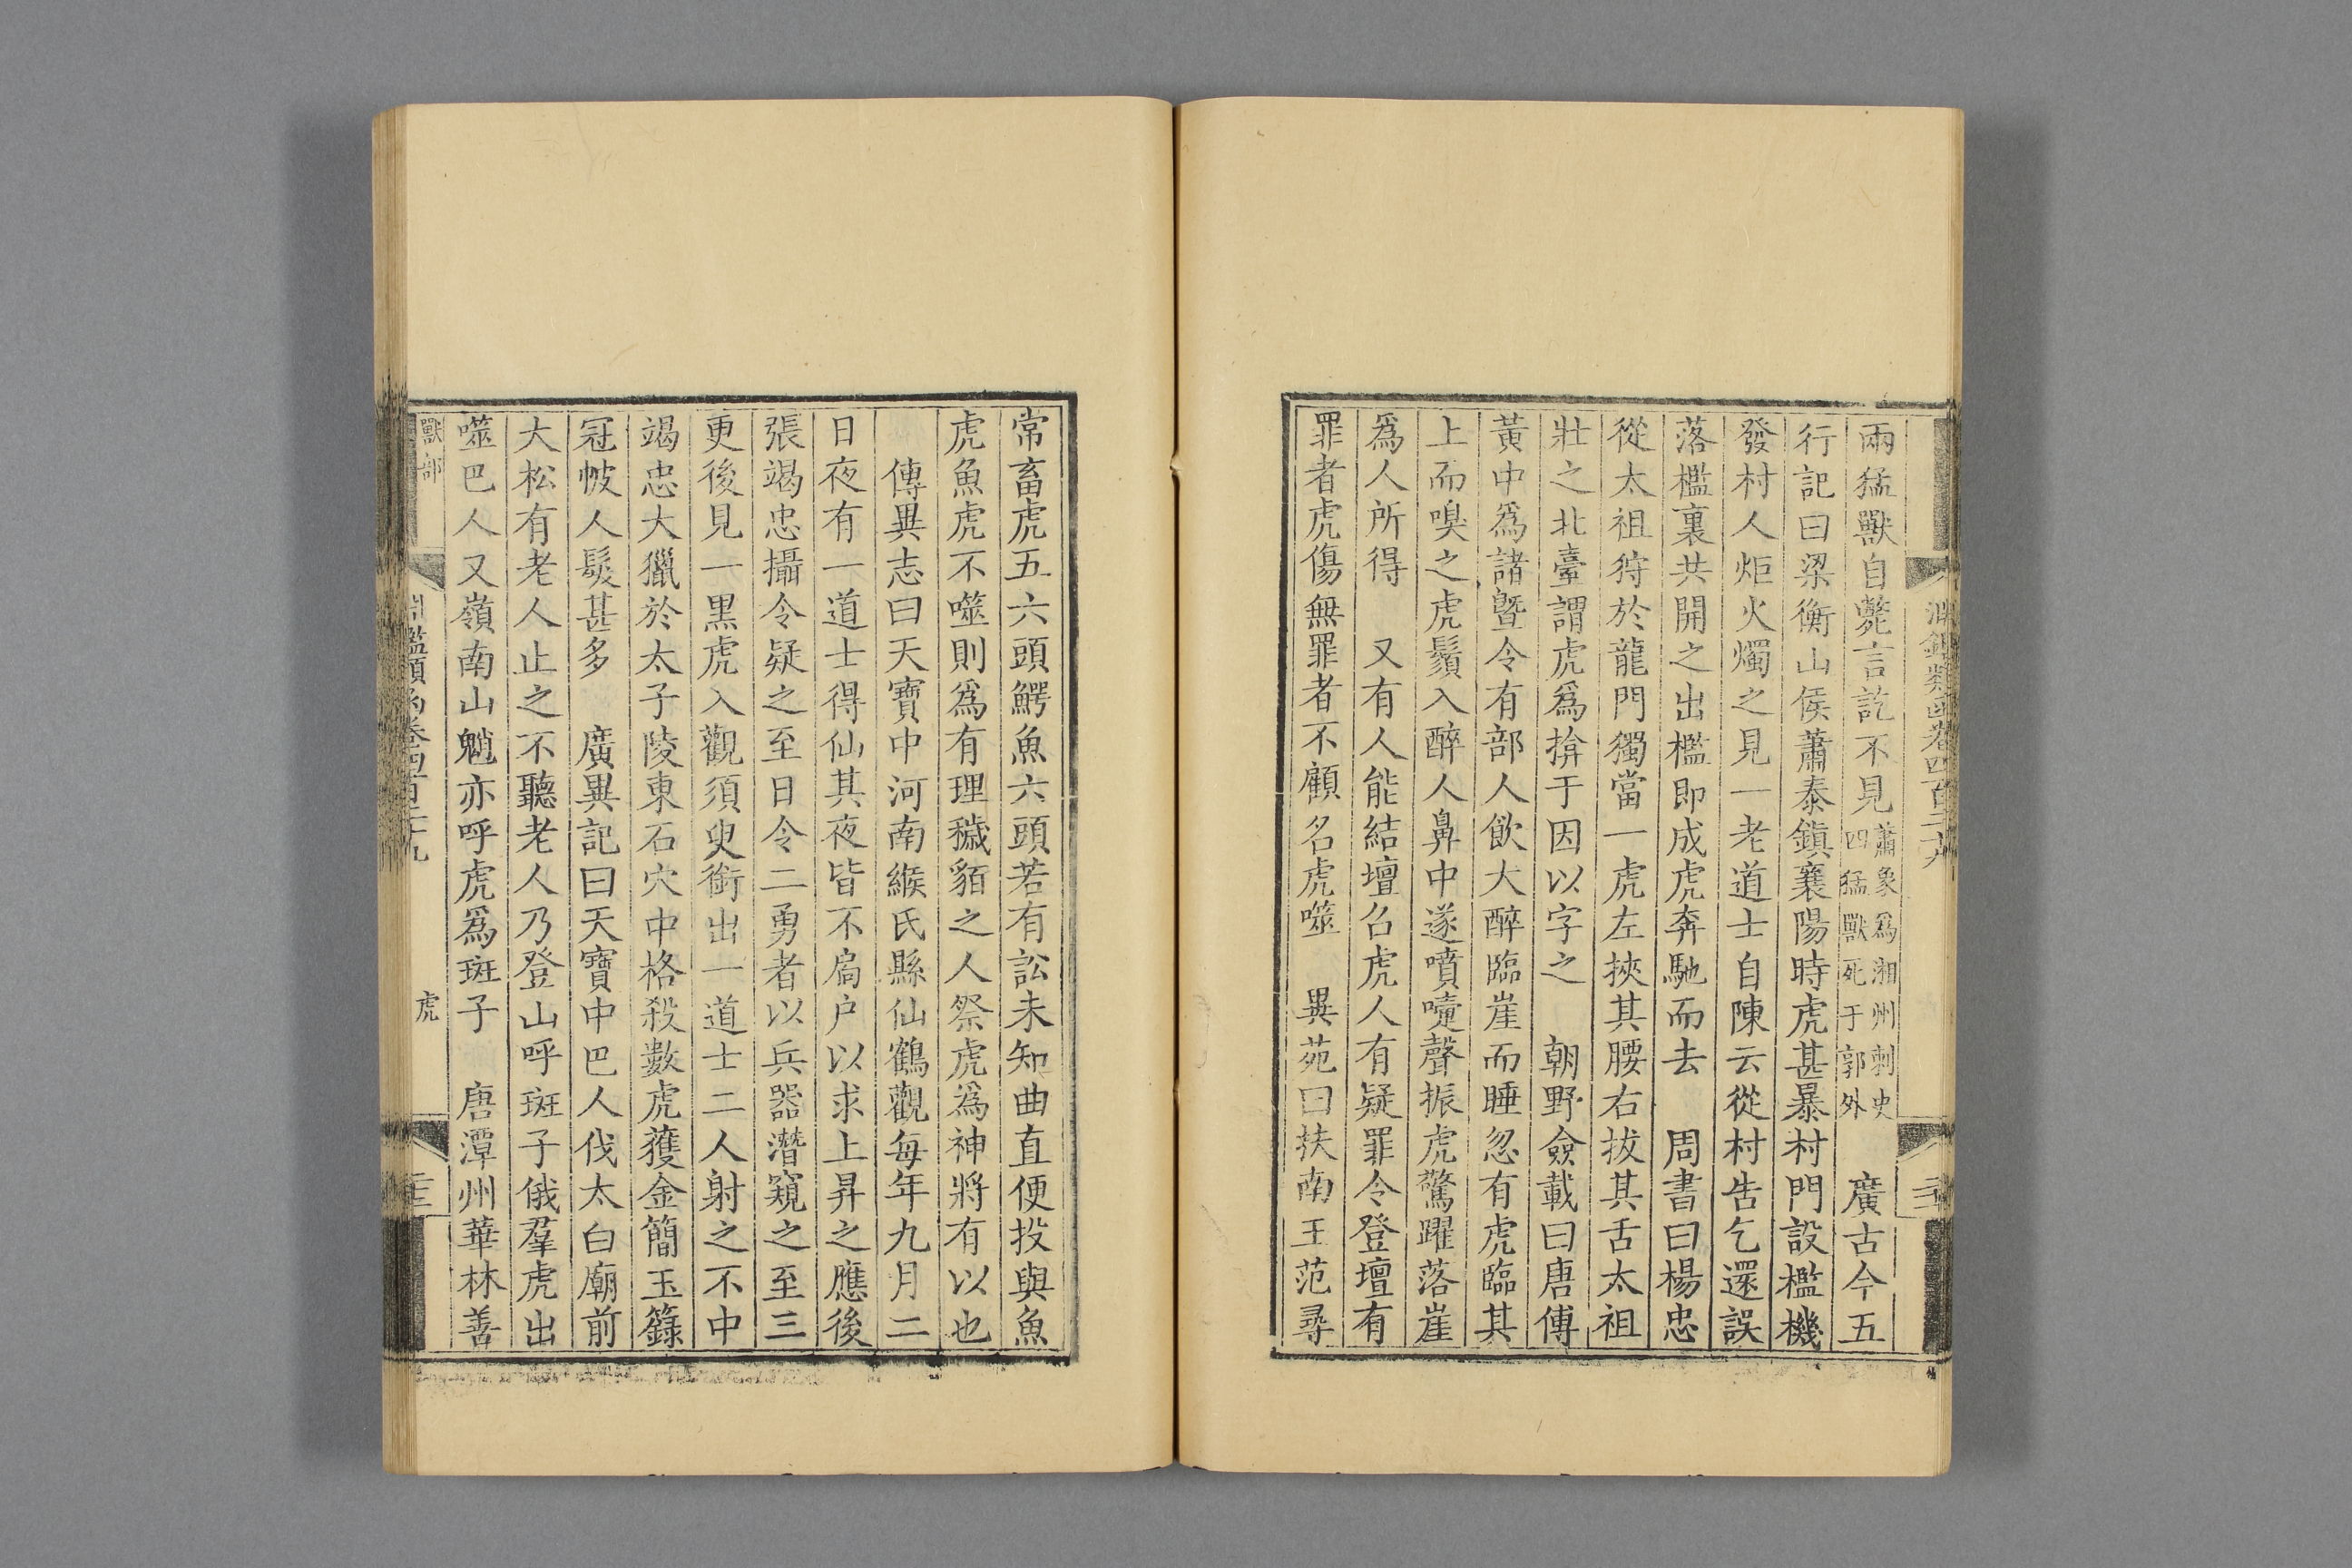 淵鑑類函卷四百二十九
兩猛獸自斃言訖不見蕭象爲湘州刺史四猛獸死于郭外 廣古今五
行記曰梁衡山侯蕭泰鎭襄陽時虎甚暴村門設檻機
發村人炬火燭之見一老道士自陳云從村告乞還誤
落檻裏共開之出檻即成虎奔馳而去 周書曰楊忠
從太祖狩於龍門獨當一虎左挾其腰右拔其舌太祖
壯之北臺謂虎爲揜于因以字之 朝野僉載曰唐傅
黃中爲諸曁令有部人飲大醉臨崖而睡忽有虎臨其
上而嗅之虎鬚入醉人鼻中遂噴嚏聲振虎驚躍落崖
爲人所得 又有人能結壇召虎人有疑罪令登壇有
罪者虎傷無罪者不顧名虎噬 異苑曰扶南王范尋
常畜虎五六頭鰐魚六頭若有訟未知曲直便投與魚
虎魚虎不噬則爲有理穢貊之人祭虎爲神將有以也
傳異志曰天寶中河南緱氏縣仙鶴觀每年九月二
日夜有一道士得仙其夜皆不扃户以求上昇之應後
張竭忠攝令疑之至日令二勇者以兵器潛窺之至三
更後見一黑虎入觀須臾銜出一道士二人射之不中
竭忠大獵於太子陵東石穴中格殺數虎獲金簡玉籙
冠帔人髮甚多 廣異記曰天寶中巴人伐太白廟前
大松有老人止之不聽老人乃登山呼斑子俄羣虎出
噬巴人又嶺南山魈亦呼虎爲斑子 唐潭州華林善
獸部
淵鑑類函卷四百二十九
虎